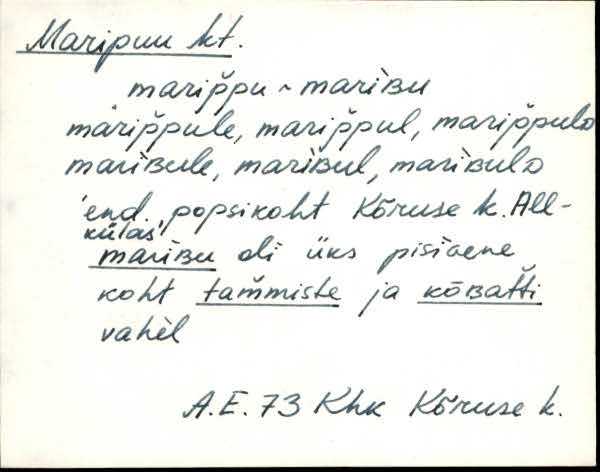 Maripuu kt.
marip̆pu ~ mariʙu
marip̆pule, marip̆pul, marip̆pulᴅ
mariʙule, mariʙul, mariʙulᴅ
end. popsikoht Kõruse k. All-
külas
mariʙu oli üks pisiɢene
koht tam̆miste ja kõʙat̆ti
vahèl
A.E. 73 Khk Kõruse k.